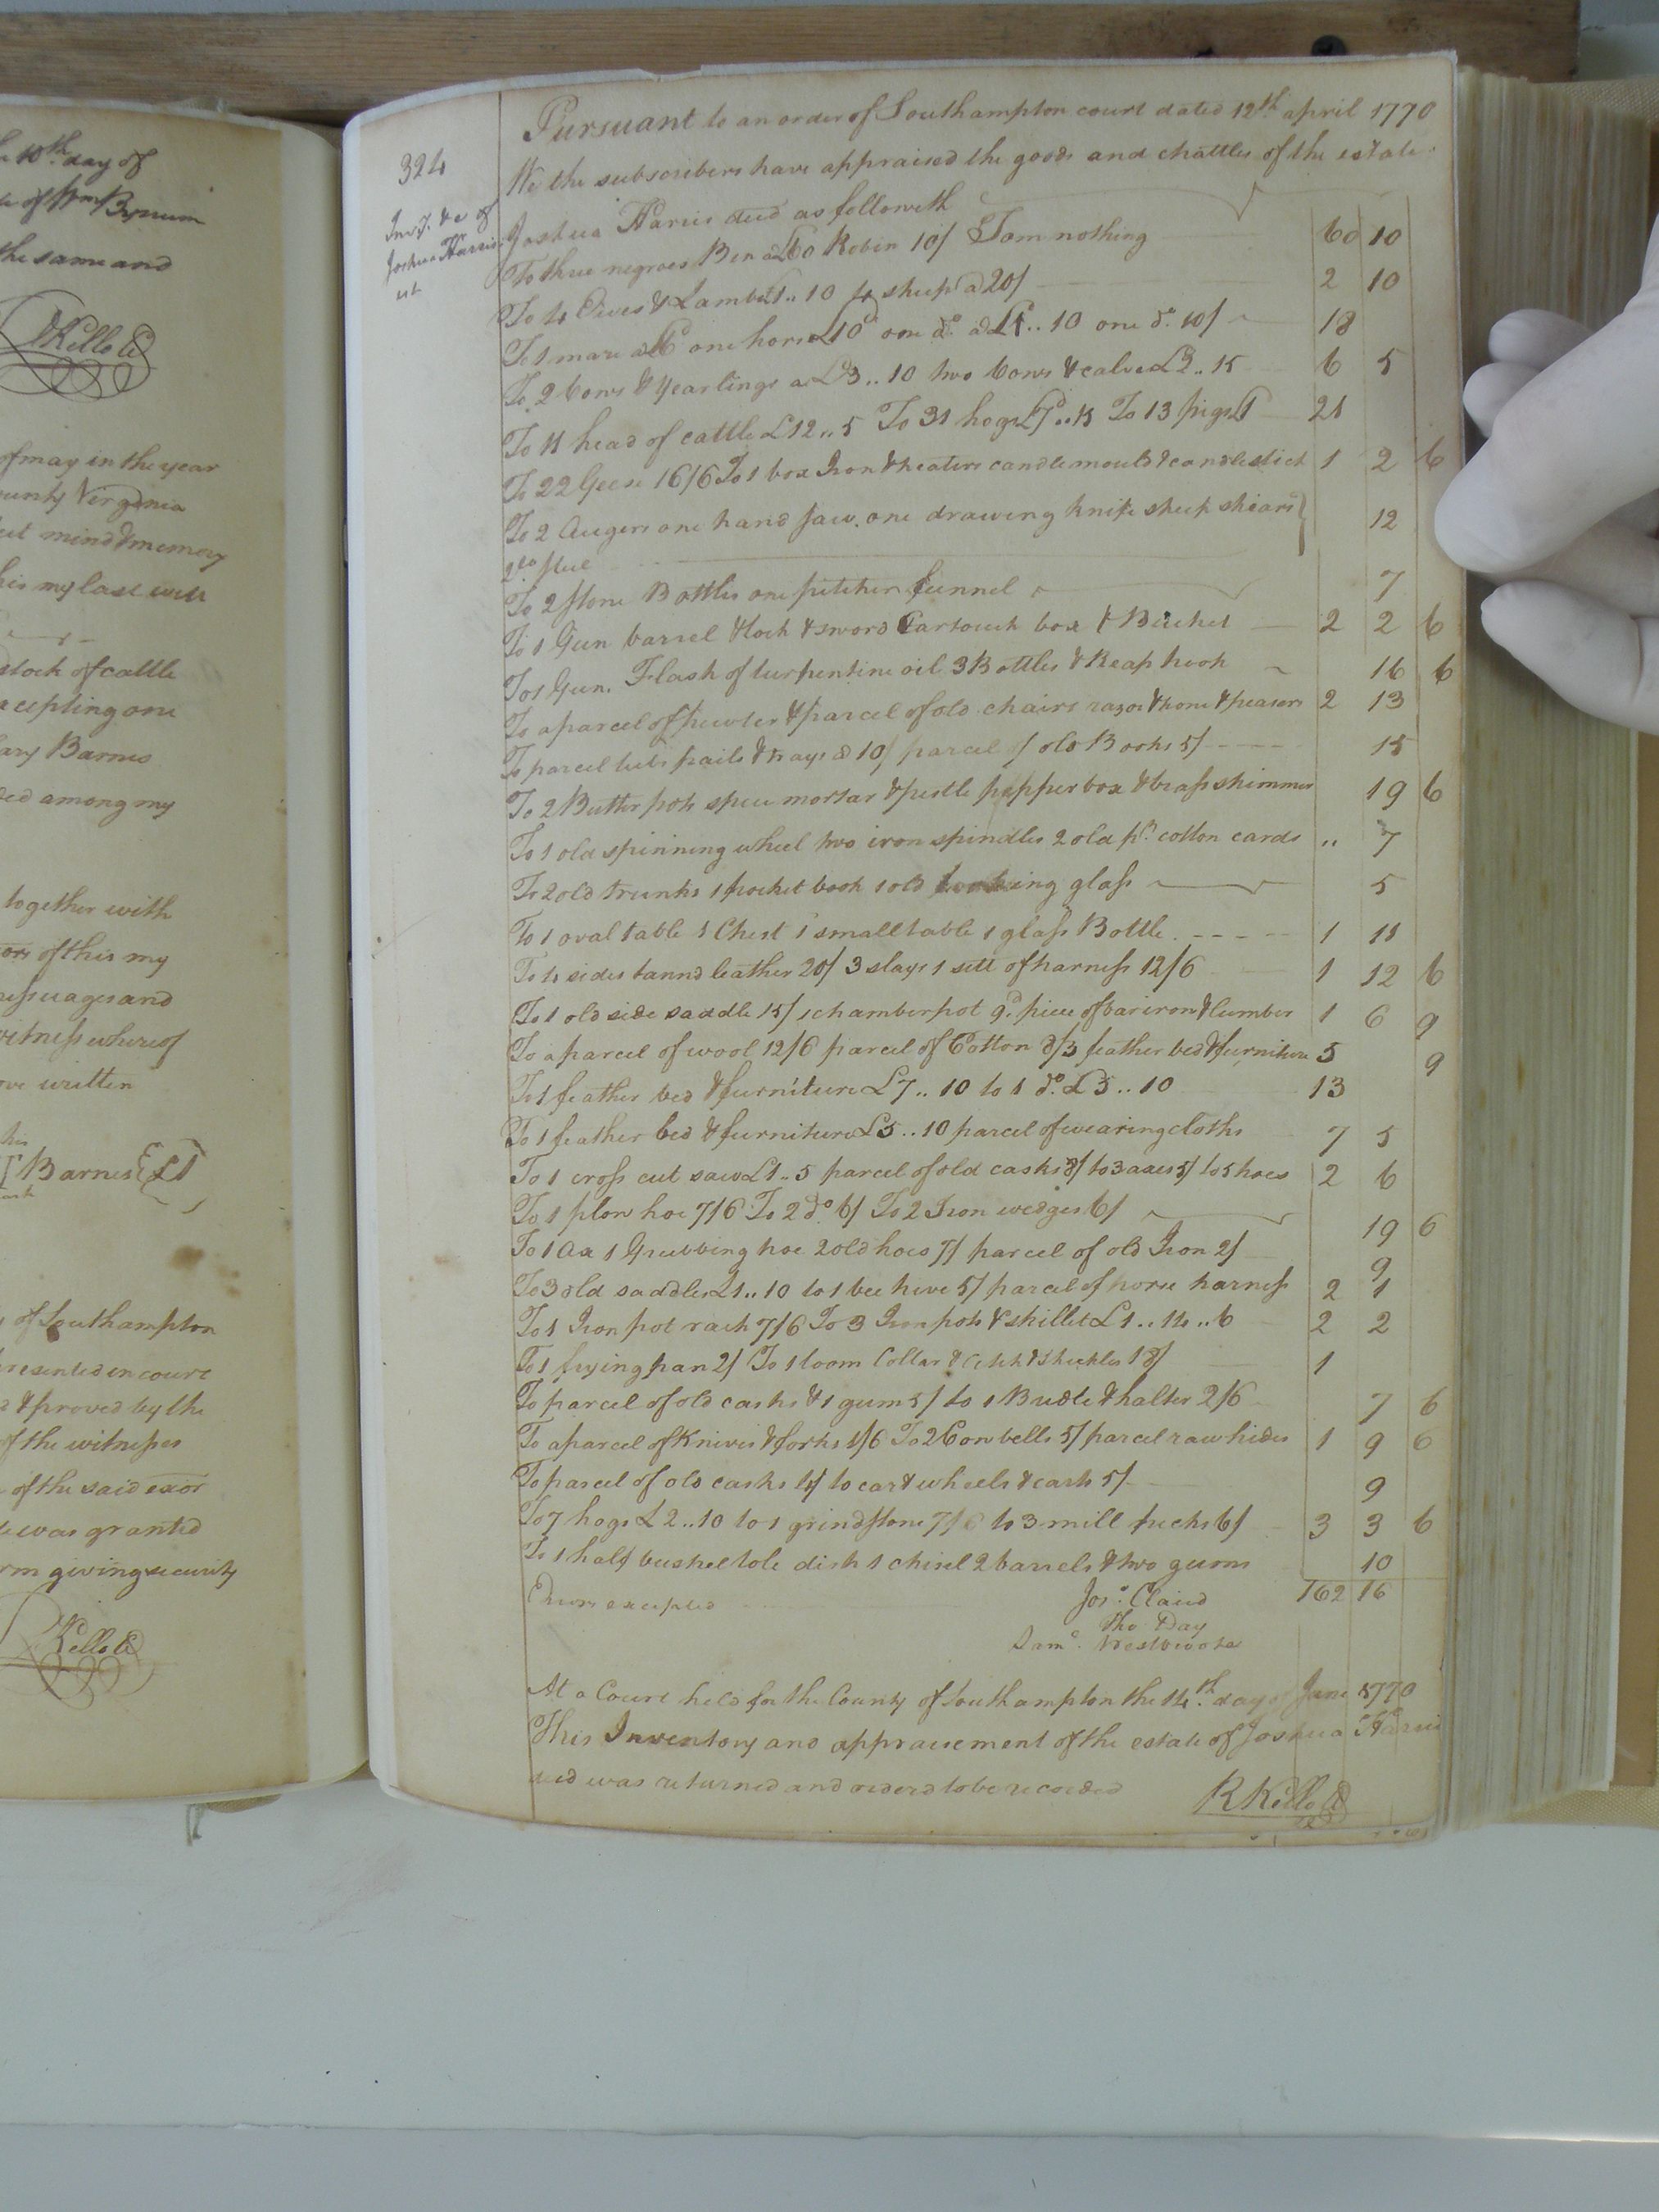 10th day of
of Wm Bynum
the same and
RKello Cl
of may in the year
Virginia
mind & memory
his my last will
stock of cattle
excepting one
Mary Barnes
among my
together with
of this my
and
witness whereof
written
his
Barnes { LS }
mark
of Southampton
presented in court
& proved by the
of the witnesses
of the said exor
was granted
giving security
RKello Cl
324
Inv.y &c of
Joshua Harris
est
Pursuant to an order of Southampton court dated 12th april 1770
We the subscribers have appraised the goods and chattles of the estate
Joshua Harris decd as followeth
To three negroes Ben a £60 Robin 10/ & Tom nothing 60 10
To 4 Ewes & Lambs £1..10 4 sheep a 20/ 2 10
To 1 mare a £6 one horse £10 one do. a £1..10 one do. 10/ 18
To 2 Cows & Yearlings a £3..10 two Cows & calves £2..15 6 5
To 11 head of cattle £12..5 To 31 hogs £7..15 To 13 pigs £1 21
To 22 Geese 16/6 To 1 box Iron & heaters candlemould & candlestick 1 2 6
To 2 Augers one hand saw one drawing knife sheep shears } 12
To 2 stone Bottles one pitcher funnel 7
To 1 Gun barrel & lock & sword Cartouch box & Bucket 2 2 6
To 1 Gun. Flask of turpentine oil 3 Bottles & Reap hook 16 6
To a parcel of pewter & parcel of old chairs razor & hone & 2 13
To parcel tubs pails & trays a 10/ parcel of old Books 5/ 15
To 2 Butter pots spice mortar & pestle pepper box & brass skimmer 19 6
To 1 old spinning wheel two iron spindles 2 old pr. cotton cards .. 7
To 2 old trunks 1 pocket book 1 old looking glass 5
To 1 oval table 1 Chest 1 small table 1 glass Bottle 1 11
To 4 sides tannd leather 20/ 3 slays 1 sett of harness 12/6 1 12 6
To 1 old side saddle 15/ 1 chamberpot 9d. piece of bar iron & lumber 1 6 9
To a parcel of wool 12/6 parcel of Cotton 8/3 feather bed & furniture 5 9
To 1 feather bed & furniture £7..10 to 1 do. £5..10 13
To 1 feather bed & furniture £5..10 parcel of wearing cloths 7 5
To 1 cross cut saw £1..5 parcel of old casks 8/ to 3 axes 5/ to 5 hoes 2 6
To 1 plow hoe 7/6 To 2 do. 6/ To 2 Iron wedges 6/ 19 6
To 1 Ax 1 Grubbing hoe 2 old hoes 7/ parcel of old Iron 2/ 9
To 3 old saddles £1..10 to 1 bee hive 5/ parcel of horse harness 2 1
To 1 Iron pot rack 7/6 To 3 Iron pots & skillet £1..14..6 2 2
To 1 frying pan 2/ To 1 loom Collar & & shuckles 18/ 1
To parcel of old casks & 1 gum 5/ to 1 Bridle & halter 2/6 7 6
To a parcel of Knives & forks 1/6 To 2 Cow bells 5/ parcel raw hides 1 9 6
To parcel of old casks 4/ to cart wheels & cart 5/ 9
To 7 hogs £2..10 to 1 grindstone 7/6 to 3 mill pecks 6/ 3 3 6
To 1 half bushel tole dish 1 chisel 2 barrels & two gums 10
Errors excepted 162 16
Jos: Claud
Tho Day
Saml. Westbrooke
At a Court held for the County of Southampton the 14th. day of June 1770
This Inventory and appraisement of the estate of Joshua Harris
decd was returned and orderd to be recorded
RKello Cl